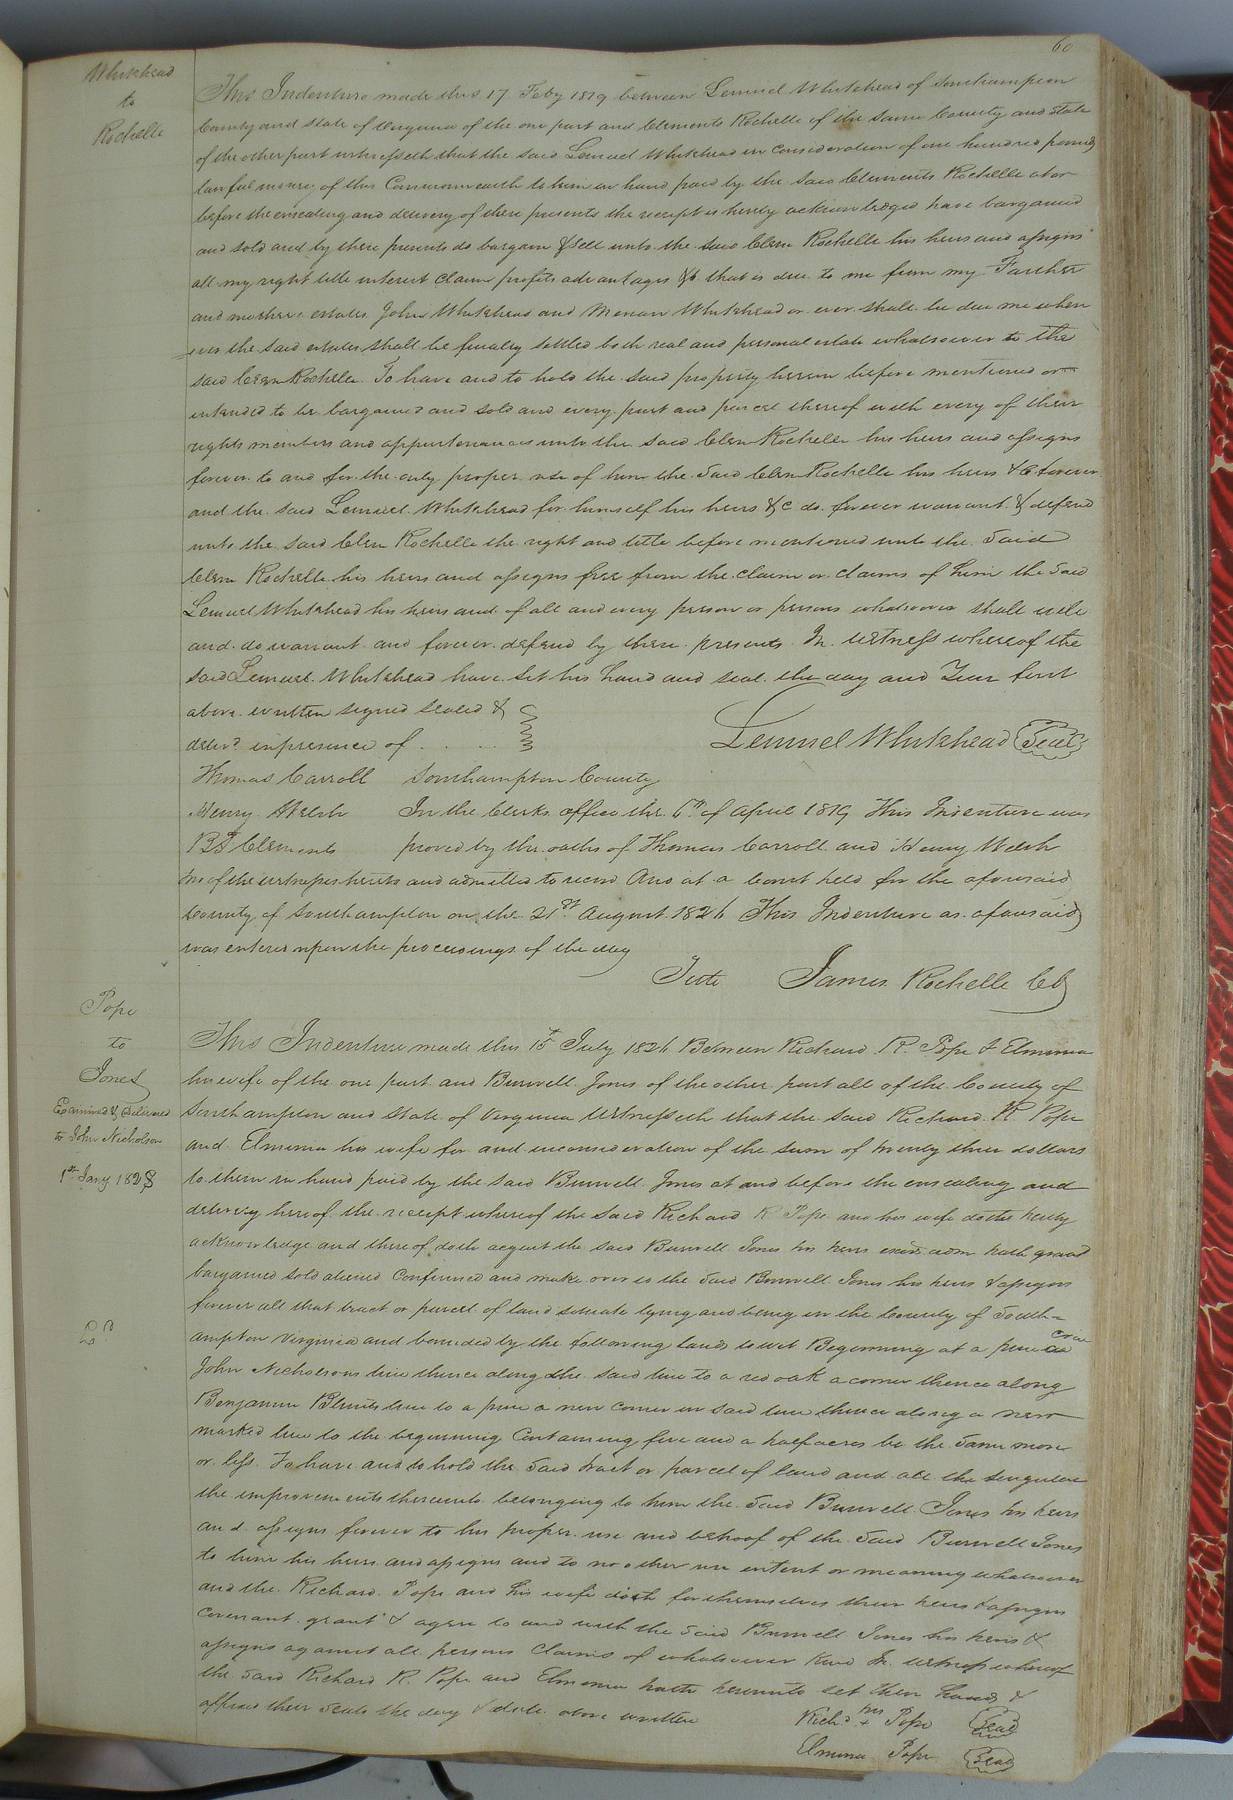 60
Whitehead
to
Rochelle
This Indenture made this 17 Feby 1819 between Lemuel Whitehead of Southampton
County and State of Virginia of the one part and Clements Rochelle of the same County and State
of the other part witnesseth that the said Lemuel Whitehead in consideration of one hundred pounds
lawful money of this Commonwealth to him in hand paid by the said Clements Rochelle at or
before the ensealing and delivery of these presents the receipt is hereby acknowledged have bargained
and sold and by these presents do bargain & sell unto the said Clem Rochelle his heirs and assigns
all my right title interest claim profits advantages &c that is due to me from my Farther
and mothers estates John Whitehead and Whitehead or ever shall be due me when
ever the said estates shall be finally settled both real and personal estate whatsoever to the
said Clem Rochelle To have and to hold the said property herein before mentioned or
intended to be bargained and sold and every part and parcel thereof with every of their
rights members and appurtenances unto the said Clem Rochelle his heirs and assigns
forever to and for the only proper use of him the said Clem Rochelle his heirs &c forever
and the said Lemuel Whitehead for himself his heirs &c do forever warrant & defend
unto the said Clem Rochelle the right and title before mentioned unto the said
Clem Rochelle his heirs and assigns free from the claim or claims of him the said
Lemuel Whitehead his heirs and of all and every person or persons whatsoever shall will
and do warrant and forever defend by these presents In witness whereof the
said Lemuel Whitehead have set his hand and seal the day and Year first
above written signed sealed &
deliv? in presence of
Lemuel Whitehead Seal
Thomas Carroll Southampton County
Henry Welsh In the Clerks office the 6th of April 1819 This Indenture was
BJ Clements proved by the oaths of Thomas Carroll and Henry Welsh
two of the witnesses hereto and admitted to record And at a Court held for the aforesaid
County of Southampton on the 21st August 1826 This Indenture as aforesaid
was entered upon the proceedings of the day
Teste James Rochelle CC
Pope
to
Jones
Examined & Delivered
to John Nicholson
1st Jany 1828
This Indenture made this 15 July 1826 Between Richard R. Pope & Elmima
his wife of the one part and Burwell Jones of the other part all of the County of
Southampton and State of Virginia Witnesseth that the said Richard R. Pope
and Elmima his wife for and in consideration of the sum of twenty three dollars
to them in hand paid by the said Burwell Jones at and before the ensealing and
delivery hereof the receipt whereof the said Richard R Pope and his wife doth hereby
acknowledge and thereof doth acquit the said Burwell Jones his heirs exors adm hath grant
bargained sold aliened Confirmed and make over to the said Burwell Jones his heirs & assigns
forever all that tract or parcel of land situate lying and being in the County of South-
ampton Virginia and bounded by the following lands to wit Beginning at a pine
John Nicholsons line thence along the said line to a red oak a corner thence along
Benjamin Blunts line to a pine a new corner in said line thence along a new
marked line to the beginning Containing five and a half acres be the same more
or less To have and to hold the said tract or parcel of land and all the singular
the improvements thereunto belonging to him the said Burwell Jones his heirs
and assigns forever to his proper use and behoof of the said Burwell Jones
to him his heirs and assigns and to no other use intent or meaning whatsoever
and the Richard Pope and his wife doth for themselves their heirs & assigns
covenant grant & agree to and with the said Burwell Jones his heirs &
assigns against all persons Claims of whatsoever kind In witness whereof
the said Richard R. Pope and Elmima hath hereunto set their hands &
affixed their seals the day & date above written
Richd his + Pope Seal
Elmima Pope Seal